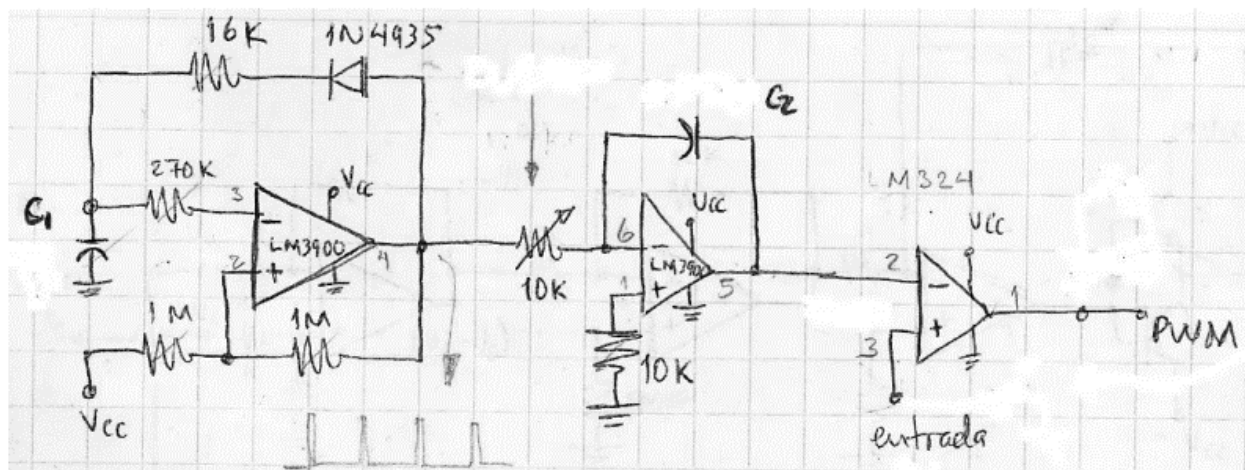 16K
1N4935
270K
C1
3
Vcc
-
LM3900
2
+
4
1M
1M
Vcc
10K
C2
6
Vcc
-
LM3900
1
+
5
10K
LM324
Vcc
2
-
3
+
1
PWM
entrada